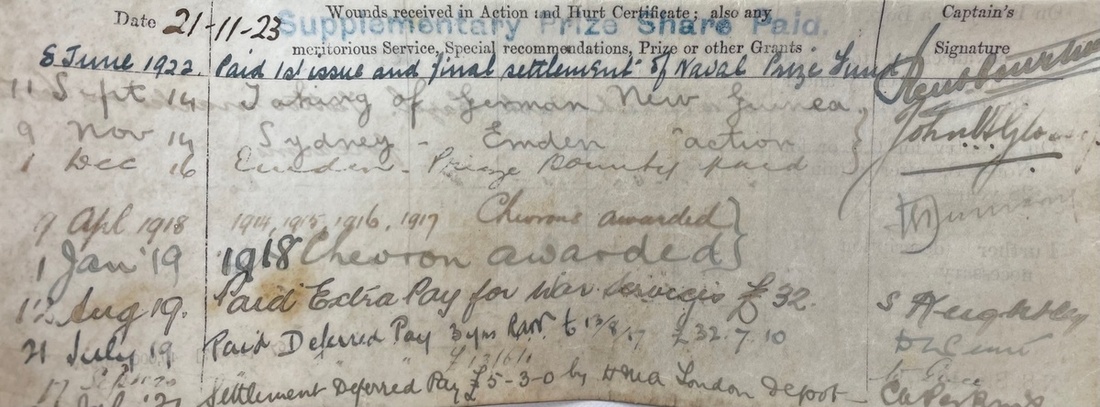 Wounds received in Action and Hurt Certificate; also any Captain's
Date 21-11-23 Supplementary Prize Share Paid.
meritorious Service, Special recommendations, Prize or other Grants Signature
8 June 1922. Paid 1st issue and final settlement of Naval Prize Fund
11 Sept 14 Taking of German New Guinea.
9 Nov 14 Sydney - Emden action
1 Dec 16 Emden - Prize Bounty paid
9 Apl 1918 1914, 1915, 1916, 1917 Chevrons awarded
1 Jan '19 1918 Chevron awarded
12 Aug 19. Paid Extra Pay for War Services £32.
21 July 19 Paid Deferred Pay 3 yrs to 13/8/17 £32.7.10
Settlement Deferred Pay £5-3-0 by London Depot